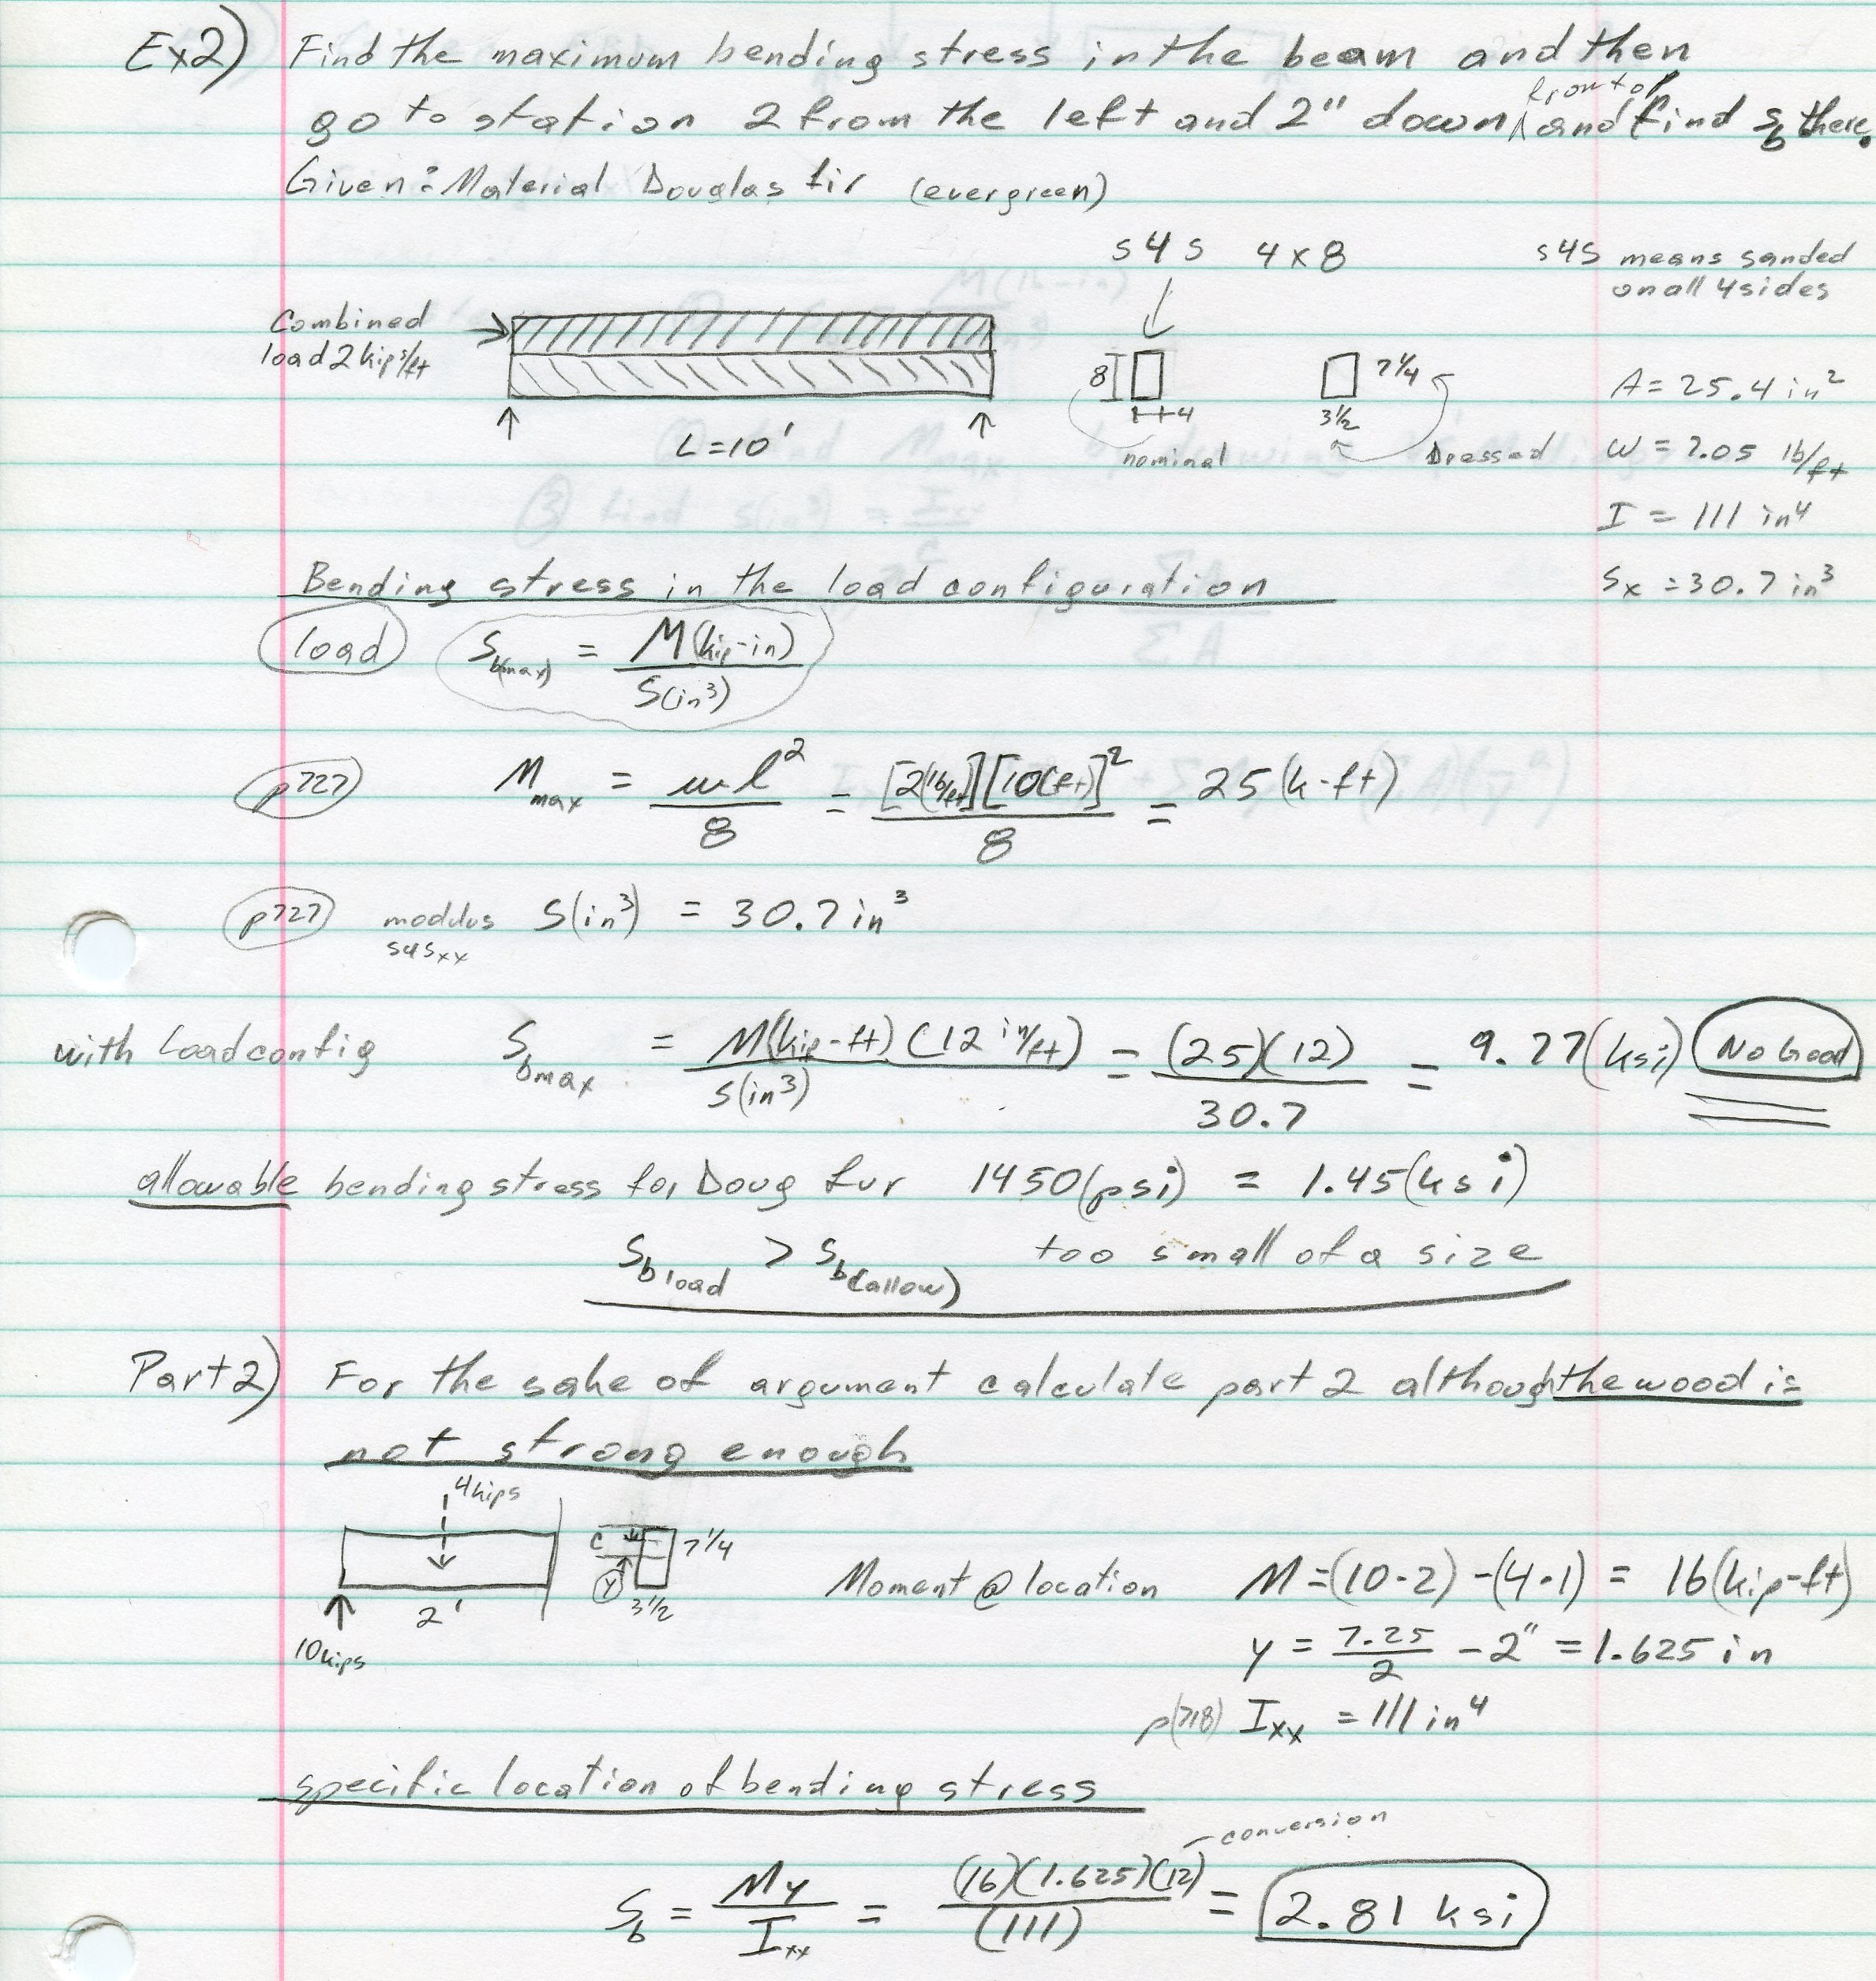 Ex2) Find the maximum bending stress in the beam and then
go to station 2 from the left and 2" down from top and find Sb there.
Given: Material Douglas fir (evergreen)
S4S 4x8
S4S means sanded
on all 4 sides
Combined
load 2 kips/ft
8
4
7 1/4
3 1/2
nominal
Dressed
L=10'
A = 25.4 in²
w = 7.05 lb/ft
I = 111 in⁴
Sx = 30.7 in³
Bending stress in the load configuration
load
Sb(max) = M(kip-in) / S(in³)
p727 Mmax = wl²/8 = [2(lb/ft)][10(ft)]²/8 = 25 (k-ft)
p727 modulus S4Sxx S(in³) = 30.7 in³
with load config Sbmax = M(kip-ft)(12 in/ft) / S(in³) = (25)(12) / 30.7 = 9.77(ksi) No Good
allowable bending stress for Doug fur 1450(psi) = 1.45(ksi)
Sb load > Sb(allow) too small of a size
Part 2) For the sake of argument calculate part 2 although the wood is
not strong enough
4kips
C
7 1/4
Y
3 1/2
2'
10kips
Moment @ location M = (10·2) - (4·1) = 16(kip-ft)
y = 7.25/2 - 2" = 1.625 in
p(718) Ixx = 111 in⁴
specific location of bending stress
conversion
Sb = My/Ixx = (16)(1.625)(12)/(111) = 2.81 ksi